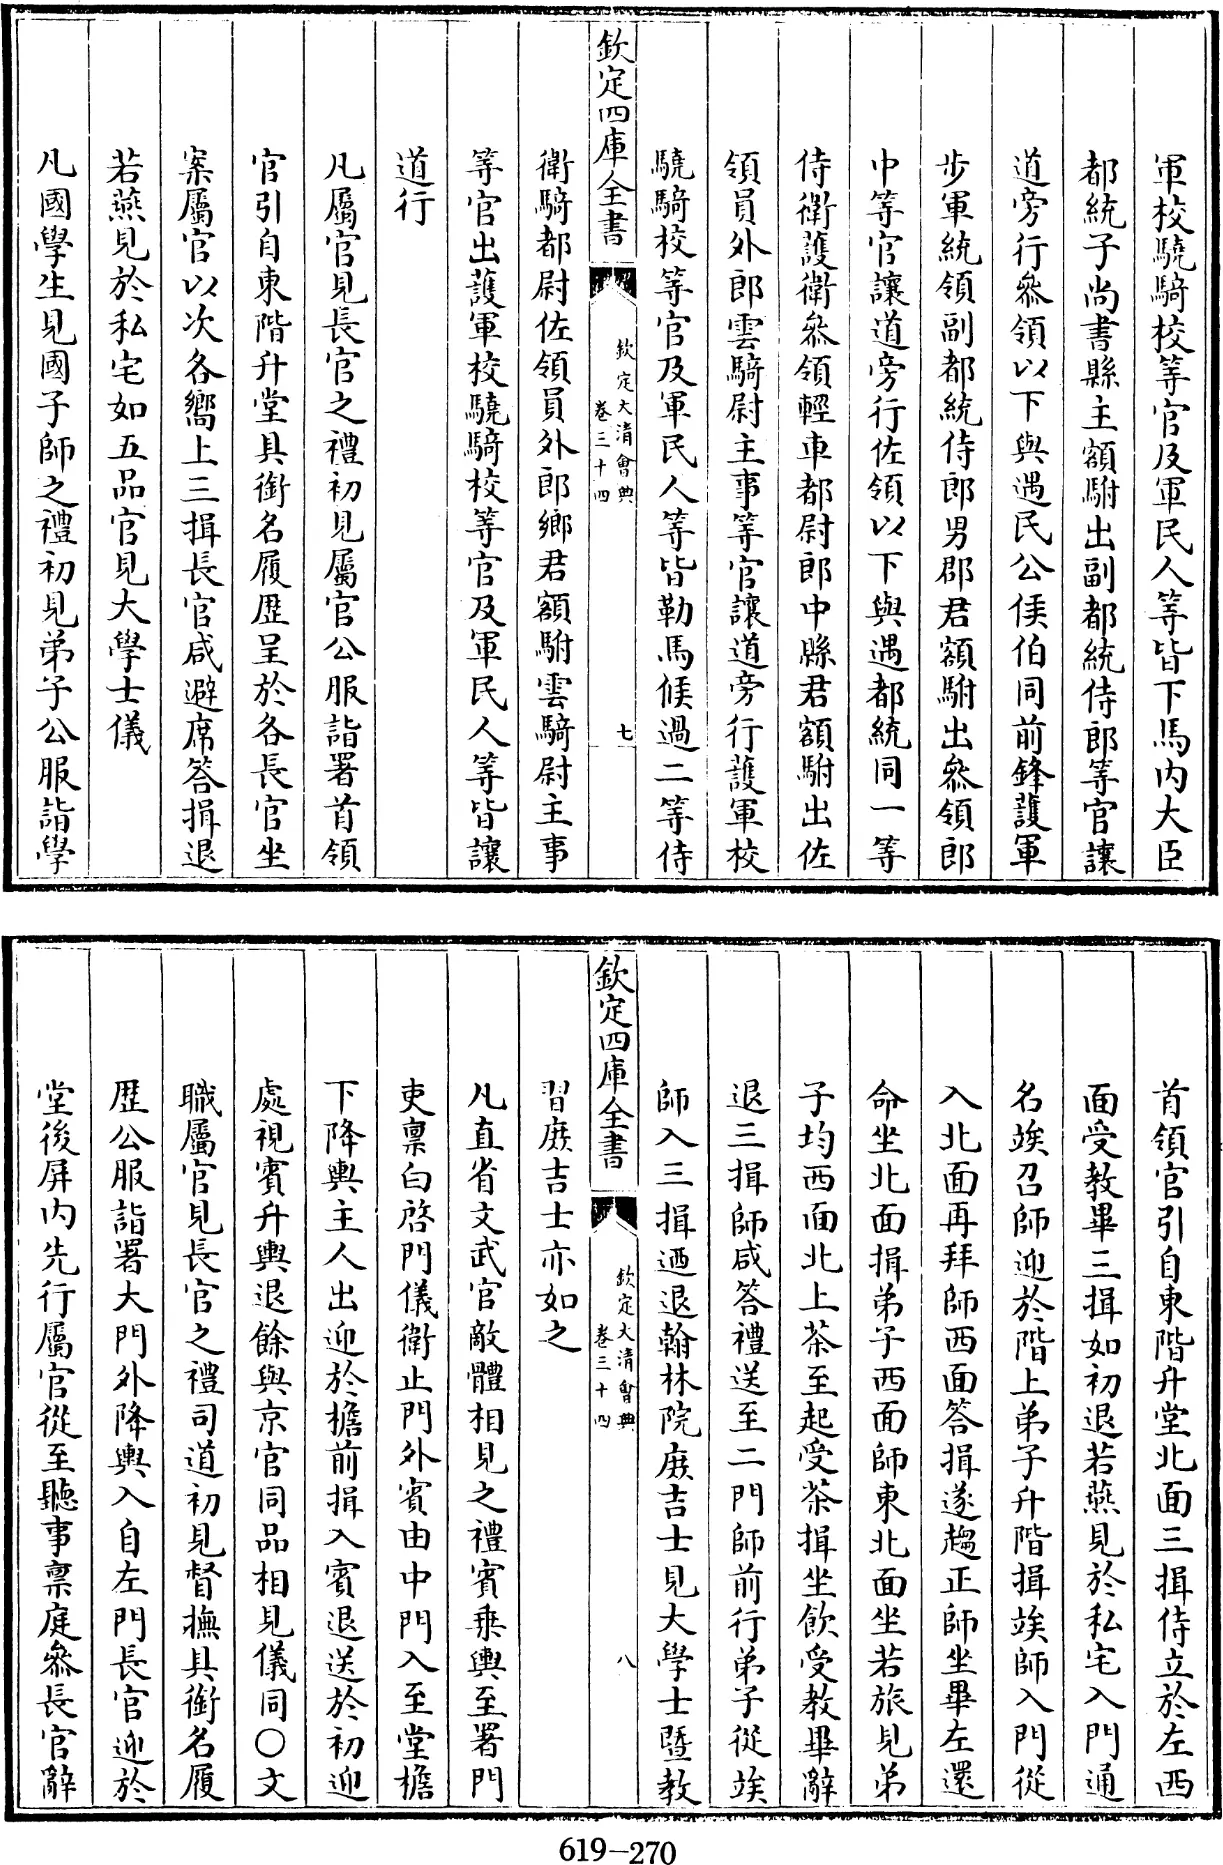 軍校驍騎校等官及軍民人等皆下馬内大臣
都統子尚書縣主額駙出副都統侍郎等官讓
道旁行叅領以下與遇民公侯伯同前鋒護軍
步軍統領副都統侍郎男郡君額駙出叅領郎
中等官讓道旁行佐領以下與遇都統同一等
侍衛護衛叅領輕車都尉郎中縣君額駙出佐
領員外郎雲騎尉主事等官讓道旁行護軍校
驍騎校等官及軍民人等皆勒馬候過二等侍
欽定四庫全書
欽定大清會典
卷三十四
七
衛騎都尉佐領員外郎鄉君額駙雲騎尉主事
等官出護軍校驍騎校等官及軍民人等皆讓
道行
凡屬官見長官之禮初見屬官公服詣署首領
官引自東階升堂具銜名履歴呈於各長官坐
案屬官以次各嚮上三揖長官咸避席答揖退
若燕見於私宅如五品官見大學士儀
凡國學生見國子師之禮初見弟子公服詣學
首領官引自東階升堂北面三揖侍立於左西
面受教畢三揖如初退若燕見於私宅入門通
名竢召師迎於階上弟子升階揖竢師入門從
入北面再拜師西面答揖遂趨正師坐畢左還
命坐北面揖弟子西面師東北面坐若旅見弟
子均西面北上茶至起受茶揖坐飲受教畢辭
退三揖師咸答禮送至二門師前行弟子從竢
師入三揖迺退翰林院庶吉士見大學士暨教
欽定四庫全書
欽定大清會典
卷三十四
八
習庶吉士亦如之
凡直省文武官敵體相見之禮賓乗輿至署門
吏稟白啓門儀衛止門外賓由中門入至堂檐
下降輿主人出迎於檐前揖入賓退送於初迎
處視賓升輿退餘與京官同品相見儀同○文
職屬官見長官之禮司道初見督撫具銜名履
歴公服詣署大門外降輿入自左門長官迎於
堂後屏内先行屬官從至聽事稟庭叅長官辭
619-270